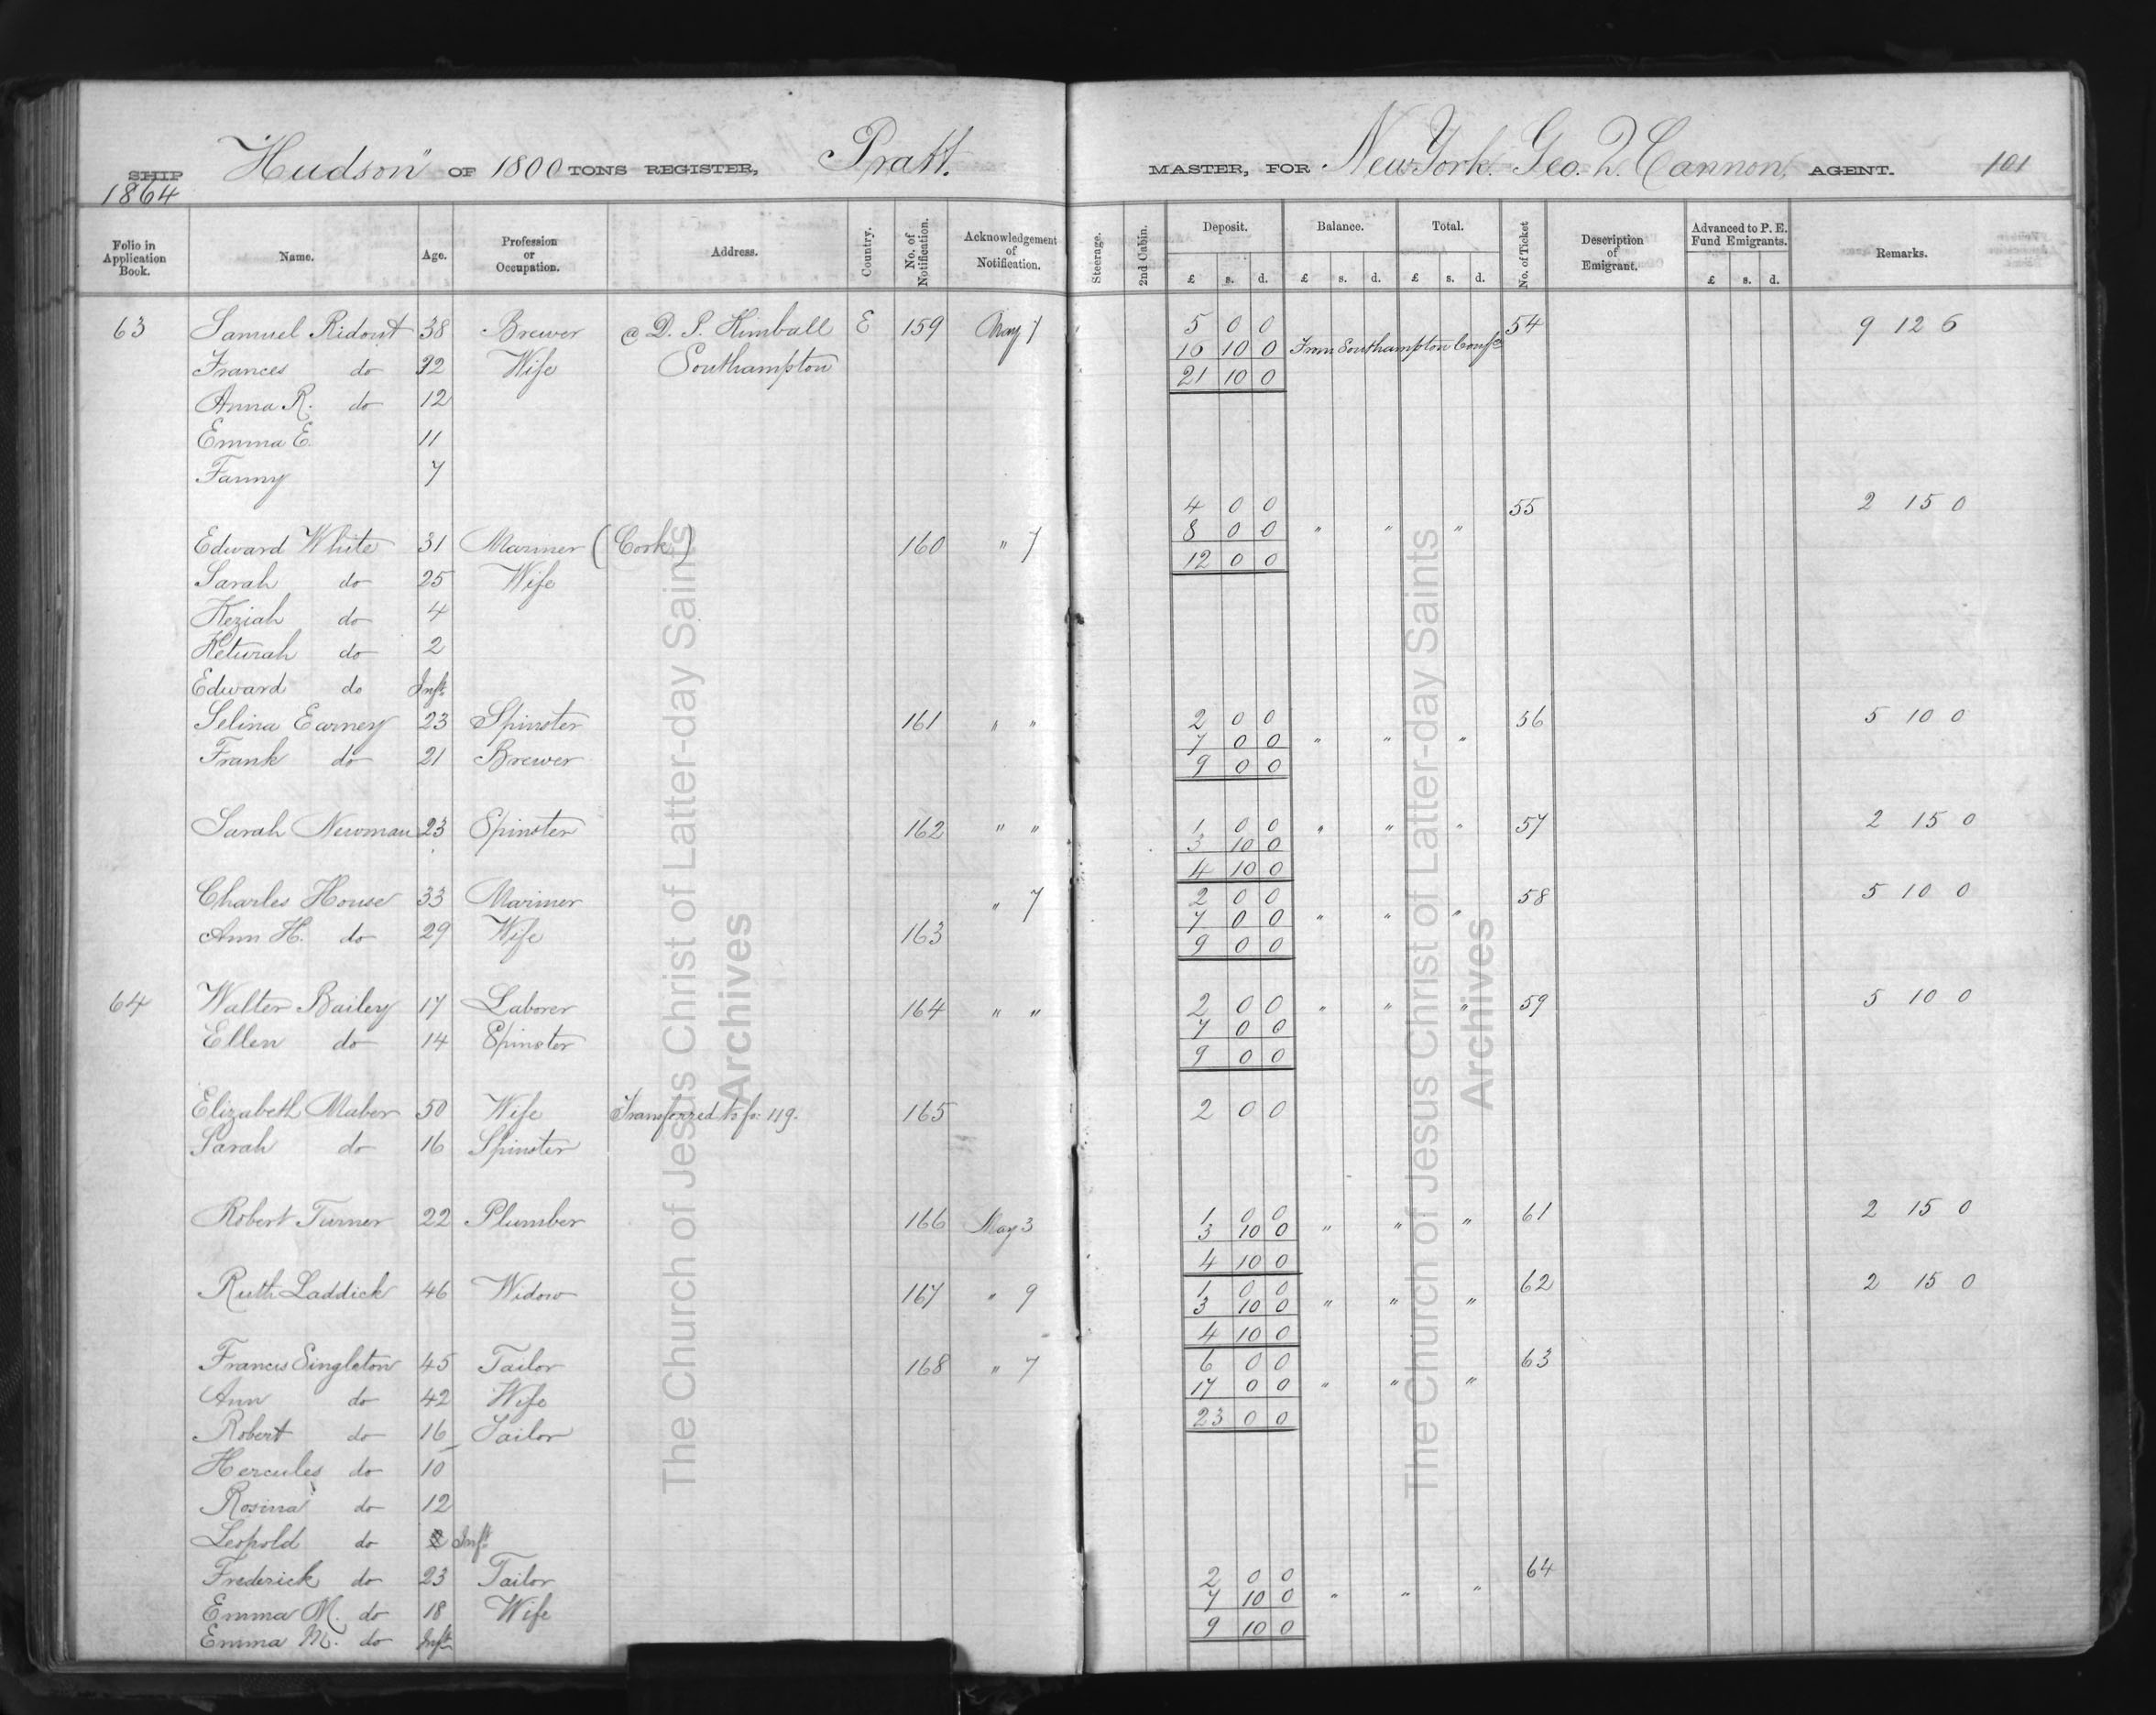 SHIP "Hudson" OF 1800 TONS REGISTER, Pratt. MASTER, FOR New York. Geo. Q. Cannon, AGENT. 101
1864
Folio in Application Book. Name. Age. Profession or Occupation. Address. Country. No. of Notification. Acknowledgement of Notification. Steerage. 2nd Cabin. Deposit. Balance. Total. No. of Ticket Description of Emigrant. Advanced to P. E. Fund Emigrants. Remarks.
£ s. d. £ s. d. £ s. d. £ s. d.
63 Samuel Ridout 38 Brewer @ D. P. Kimball E 159 May 7 5 0 0 54 9 12 6
16 10 0 From Southampton Confce
Frances do 32 Wife Southampton 21 10 0
Anna R. do 12
Emma E. 11
Fanny 7
4 0 0 55 2 15 0
8 0 0 " " "
Edward White 31 Mariner (Cork) 160 " 7 12 0 0
Sarah do 25 Wife
Keziah do 4
Keturah do 2
Edward do Inft
Selina Earney 23 Spinster 161 " " 2 0 0 56 5 10 0
7 0 0 " " "
Frank do 21 Brewer 9 0 0
Sarah Newman 23 Spinster 162 " " 1 0 0 " " " 57 2 15 0
3 10 0
4 10 0
Charles House 33 Mariner " 7 2 0 0 58 5 10 0
7 0 0 " " "
Ann H. do 29 Wife 163 9 0 0
64 Walter Bailey 17 Laborer 164 " " 2 0 0 " " " 59 5 10 0
7 0 0
Ellen do 14 Spinster 9 0 0
Elizabeth Maber 50 Wife Transferred to fo: 119. 165 2 0 0
Sarah do 16 Spinster
Robert Turner 22 Plumber 166 May 3 1 0 0 61 2 15 0
3 10 0 " " "
4 10 0
Ruth Laddick 46 Widow 167 " 9 1 0 0 62 2 15 0
3 10 0 " " "
4 10 0
Francis Singleton 45 Tailor 168 " 7 6 0 0 63
17 0 0 " " "
Ann do 42 Wife 23 0 0
Robert do 16 Tailor
Hercules do 10
Rosina do 12
Leopold do 2 Inft
Frederick do 23 Tailor 2 0 0 64
7 10 0 " " "
Emma M. do 18 Wife 9 10 0
Emma M. do Inft
The Church of Jesus Christ of Latter-day Saints
Archives
The Church of Jesus Christ of Latter-day Saints
Archives